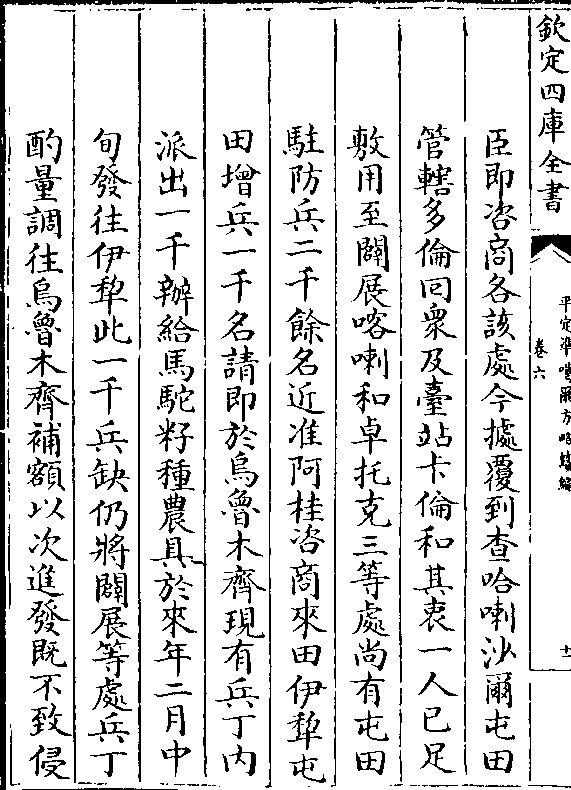 欽定四庫全書
平定準噶爾方略續編
卷六
十一
臣即咨商各該處今據覆到查哈喇沙爾屯田
管轄多倫回衆及臺站卡倫和其衷一人已足
敷用至闢展喀喇和卓托克三等處尚有屯田
駐防兵二千餘名近准阿桂咨商來田伊犂屯
田增兵一千名請即於烏魯木齊現有兵丁内
派出一千辦給馬駝籽種農具於來年二月中
旬發往伊犂此一千兵缺仍將闢展等處兵丁
酌量調往烏魯木齊補額以次進發既不致侵